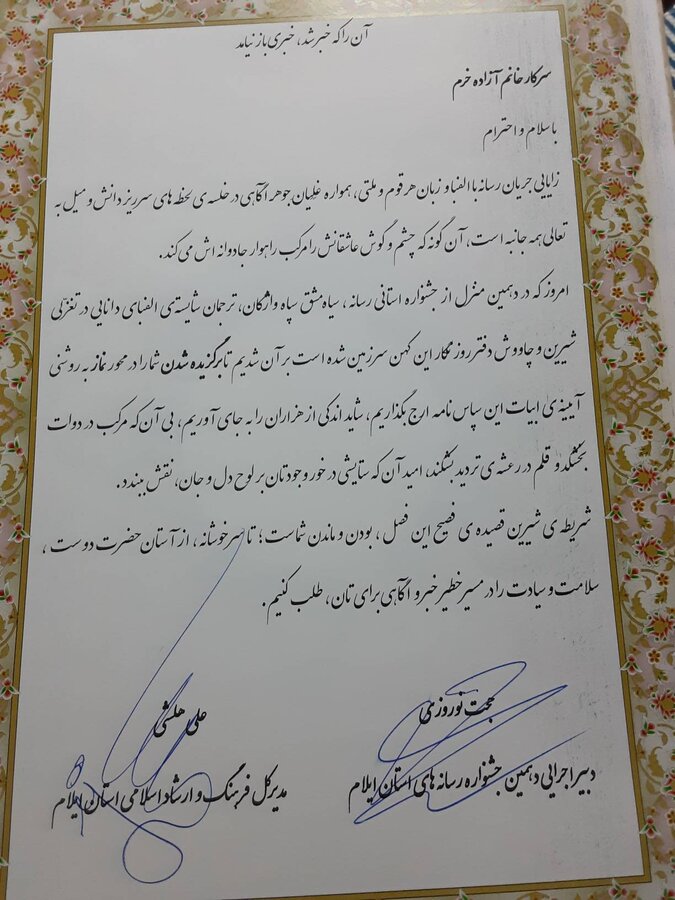 آن را که خبر شد، خبری باز نیامد
سرکار خانم آزاده خرم
با سلام و احترام
زایایی جریان رسانه با الفبا و زبان هر قوم و ملتی، همواره غلیان جوهر آگاهی در خلسه ی لحظه های سرریز دانش و میل به
تعالی همه جانبه است، آن گونه که چشم و گوش عاشقانش را مرکب راهوار جادوانه اش می کند.
امروز که در دهمین منزل از جشنواره استانی رسانه، سیاه مشق سپاه واژگان، ترجمان شایسته ی الفبای دانایی در تغزلی
شیرین و چاووش دفتر روزنگار این کهن سرزمین شده است بر آن شدیم تا برگزیده شدن شما را در محور نماز به روشنی
آیینه ی ابیات این سپاس نامه ارج بگذاریم، شاید اندکی از هزاران را به جای آوریم، بی آن که مرکب در دوات
بخشکد و قلم در رعشه ی تردید بشکند، امید آن که ستایشی در خور وجودتان بر لوح دل و جان، نقش ببندد.
شریطه ی شیرین قصیده ی فصیح این فصل، بودن و ماندن شماست؛ تا سرخوشانه، از آستان حضرت دوست،
سلامت و سیادت را در مسیر خطیر خبر و آگاهی برای تان، طلب کنیم.
حجت نوروزی
دبیر اجرایی دهمین جشنواره رسانه های استان ایلام
علی هلشی
مدیرکل فرهنگ و ارشاد اسلامی استان ایلام